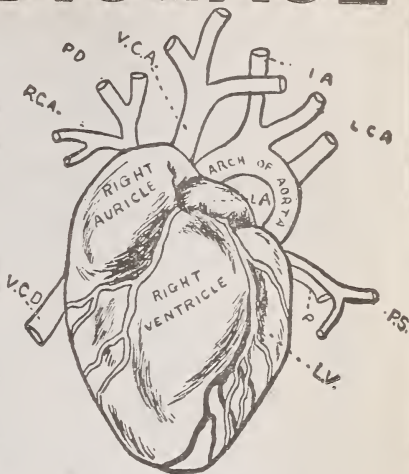 V.C.A.
PD
IA
RCA.
LCA
ARCH OF AORTA
RIGHT
AURICLE
LA
V.C.D.
RIGHT
VENTRICLE
P
P.S.
L.V.